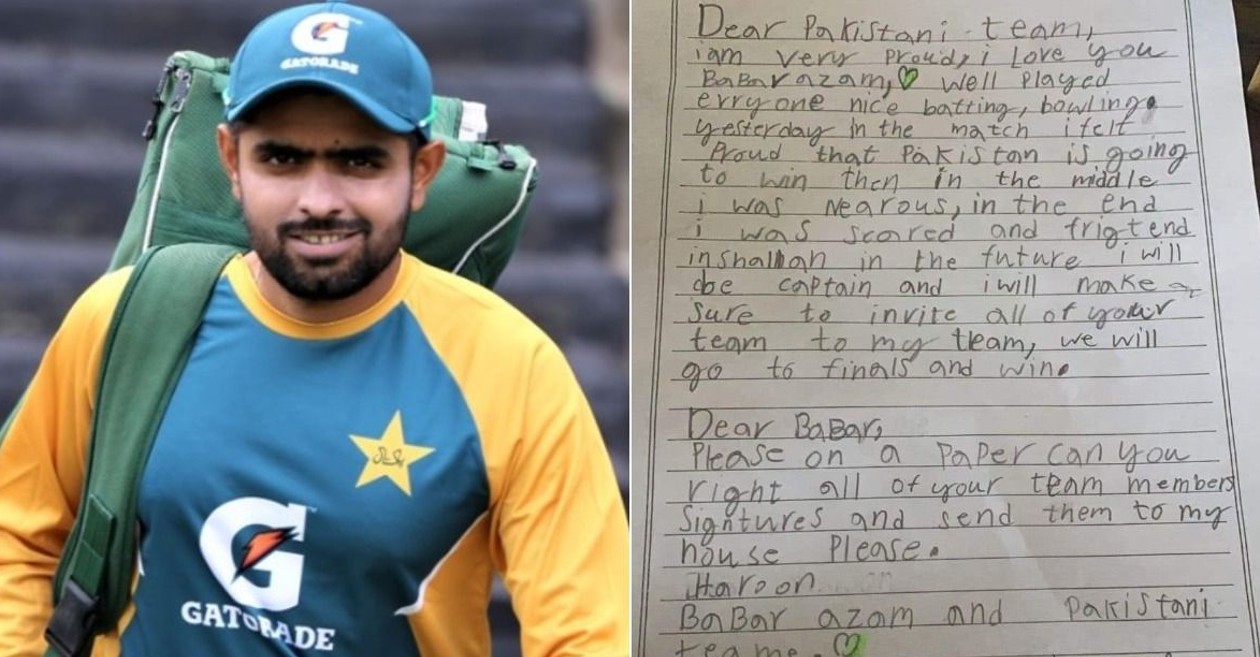 G
GATORADE
G
GATORADE
Dear Pakistani team,
iam very proud, i love you
BaBar azam, well played
erryone nice batting, bowling.
yesterday in the match ifelt
Proud that Pakistan is going
to win then in the middle
i was nearous, in the end
i was scared and frigtend
inshallah in the future i will
be captain and i will make
Sure to invite all of your
team to my team, we will
go to finals and win.
Dear BaBar,
Please on a Paper can you
right all of your team members
Signtures and send them to my
house Please.
Haroon
BaBar azam and Pakistani
teame.